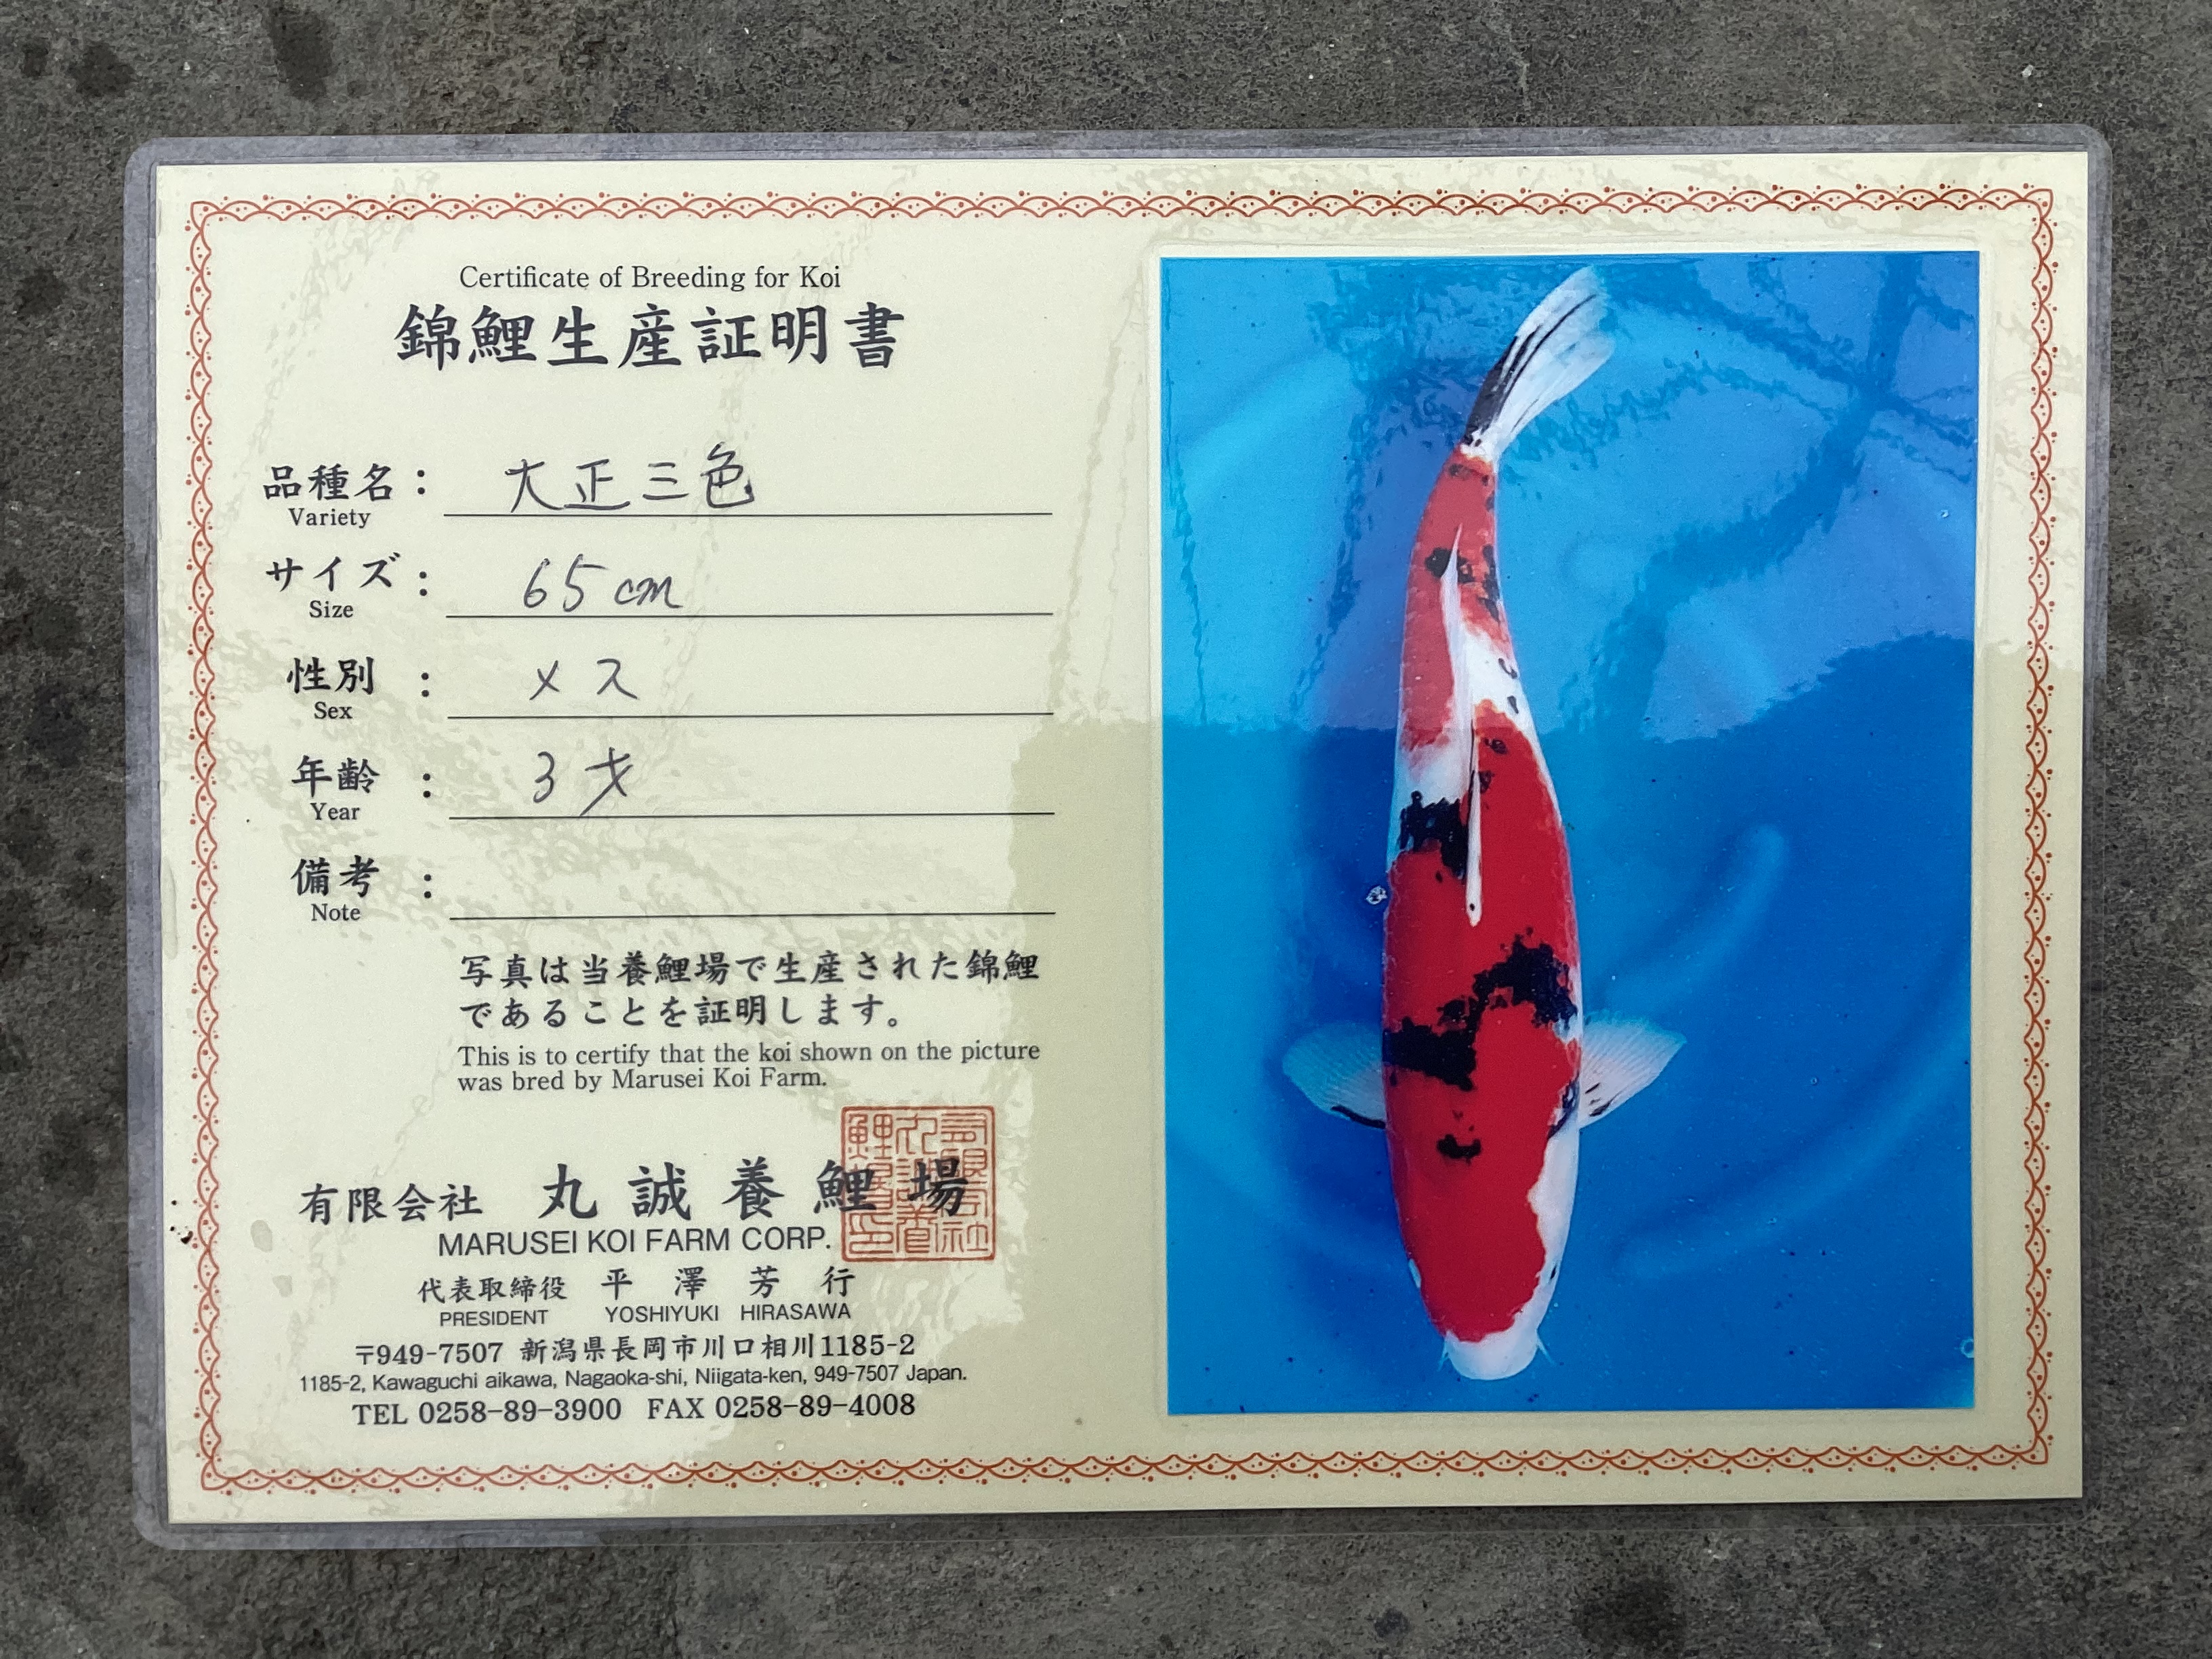 Certificate of Breeding for Koi
錦鯉生産証明書
品種名： 大正三色
Variety
サイズ： 65cm
Size
性別： メス
Sex
年齢： 3才
Year
備考：
Note
写真は当養鯉場で生産された錦鯉
であることを証明します。
This is to certify that the koi shown on the picture
was bred by Marusei Koi Farm.
有限会社 丸誠養鯉場
MARUSEI KOI FARM CORP.
代表取締役 平澤芳行
PRESIDENT YOSHIYUKI HIRASAWA
〒949-7507 新潟県長岡市川口相川1185-2
1185-2, Kawaguchi aikawa, Nagaoka-shi, Niigata-ken, 949-7507 Japan.
TEL 0258-89-3900 FAX 0258-89-4008